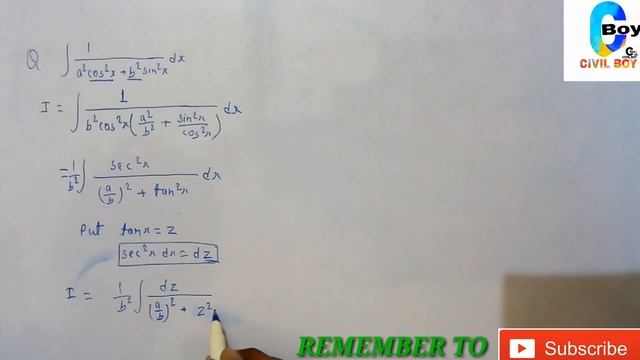 Q. ∫ 1/(a²cos²x + b²sin²x) dx
I = ∫ 1/(b²cos²x(a²/b² + sin²x/cos²x)) dx
= 1/b² ∫ sec²x/((a/b)² + tan²x) dx
Put tanx = z
sec²x dx = dz
I = 1/b² ∫ dz/((a/b)² + z²
Boy
CIVIL BOY
REMEMBER TO
Subscribe